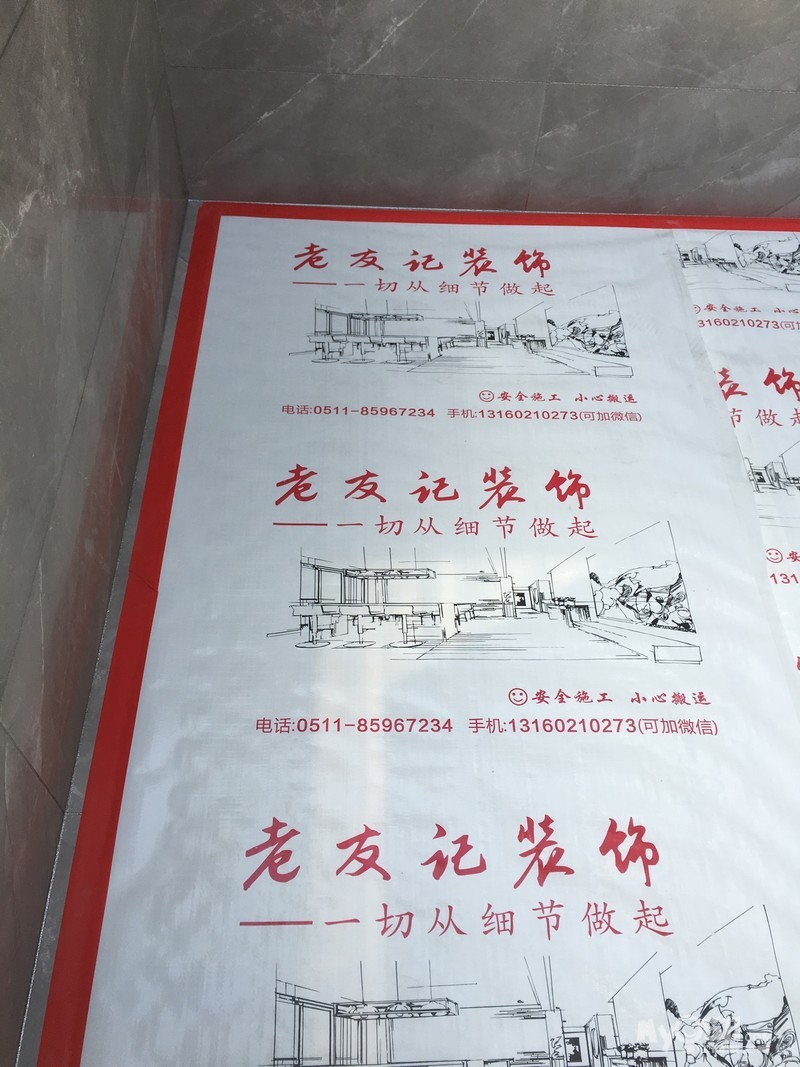 老友记装饰
——一切从细节做起
安全施工 小心搬运
电话:0511-85967234 手机:13160210273(可加微信)
老友记装饰
——一切从细节做起
安全施工 小心搬运
电话:0511-85967234 手机:13160210273(可加微信)
老友记装饰
——一切从细节做起
安全施工 小心
13160210273(可加
装饰
节做起
安
131